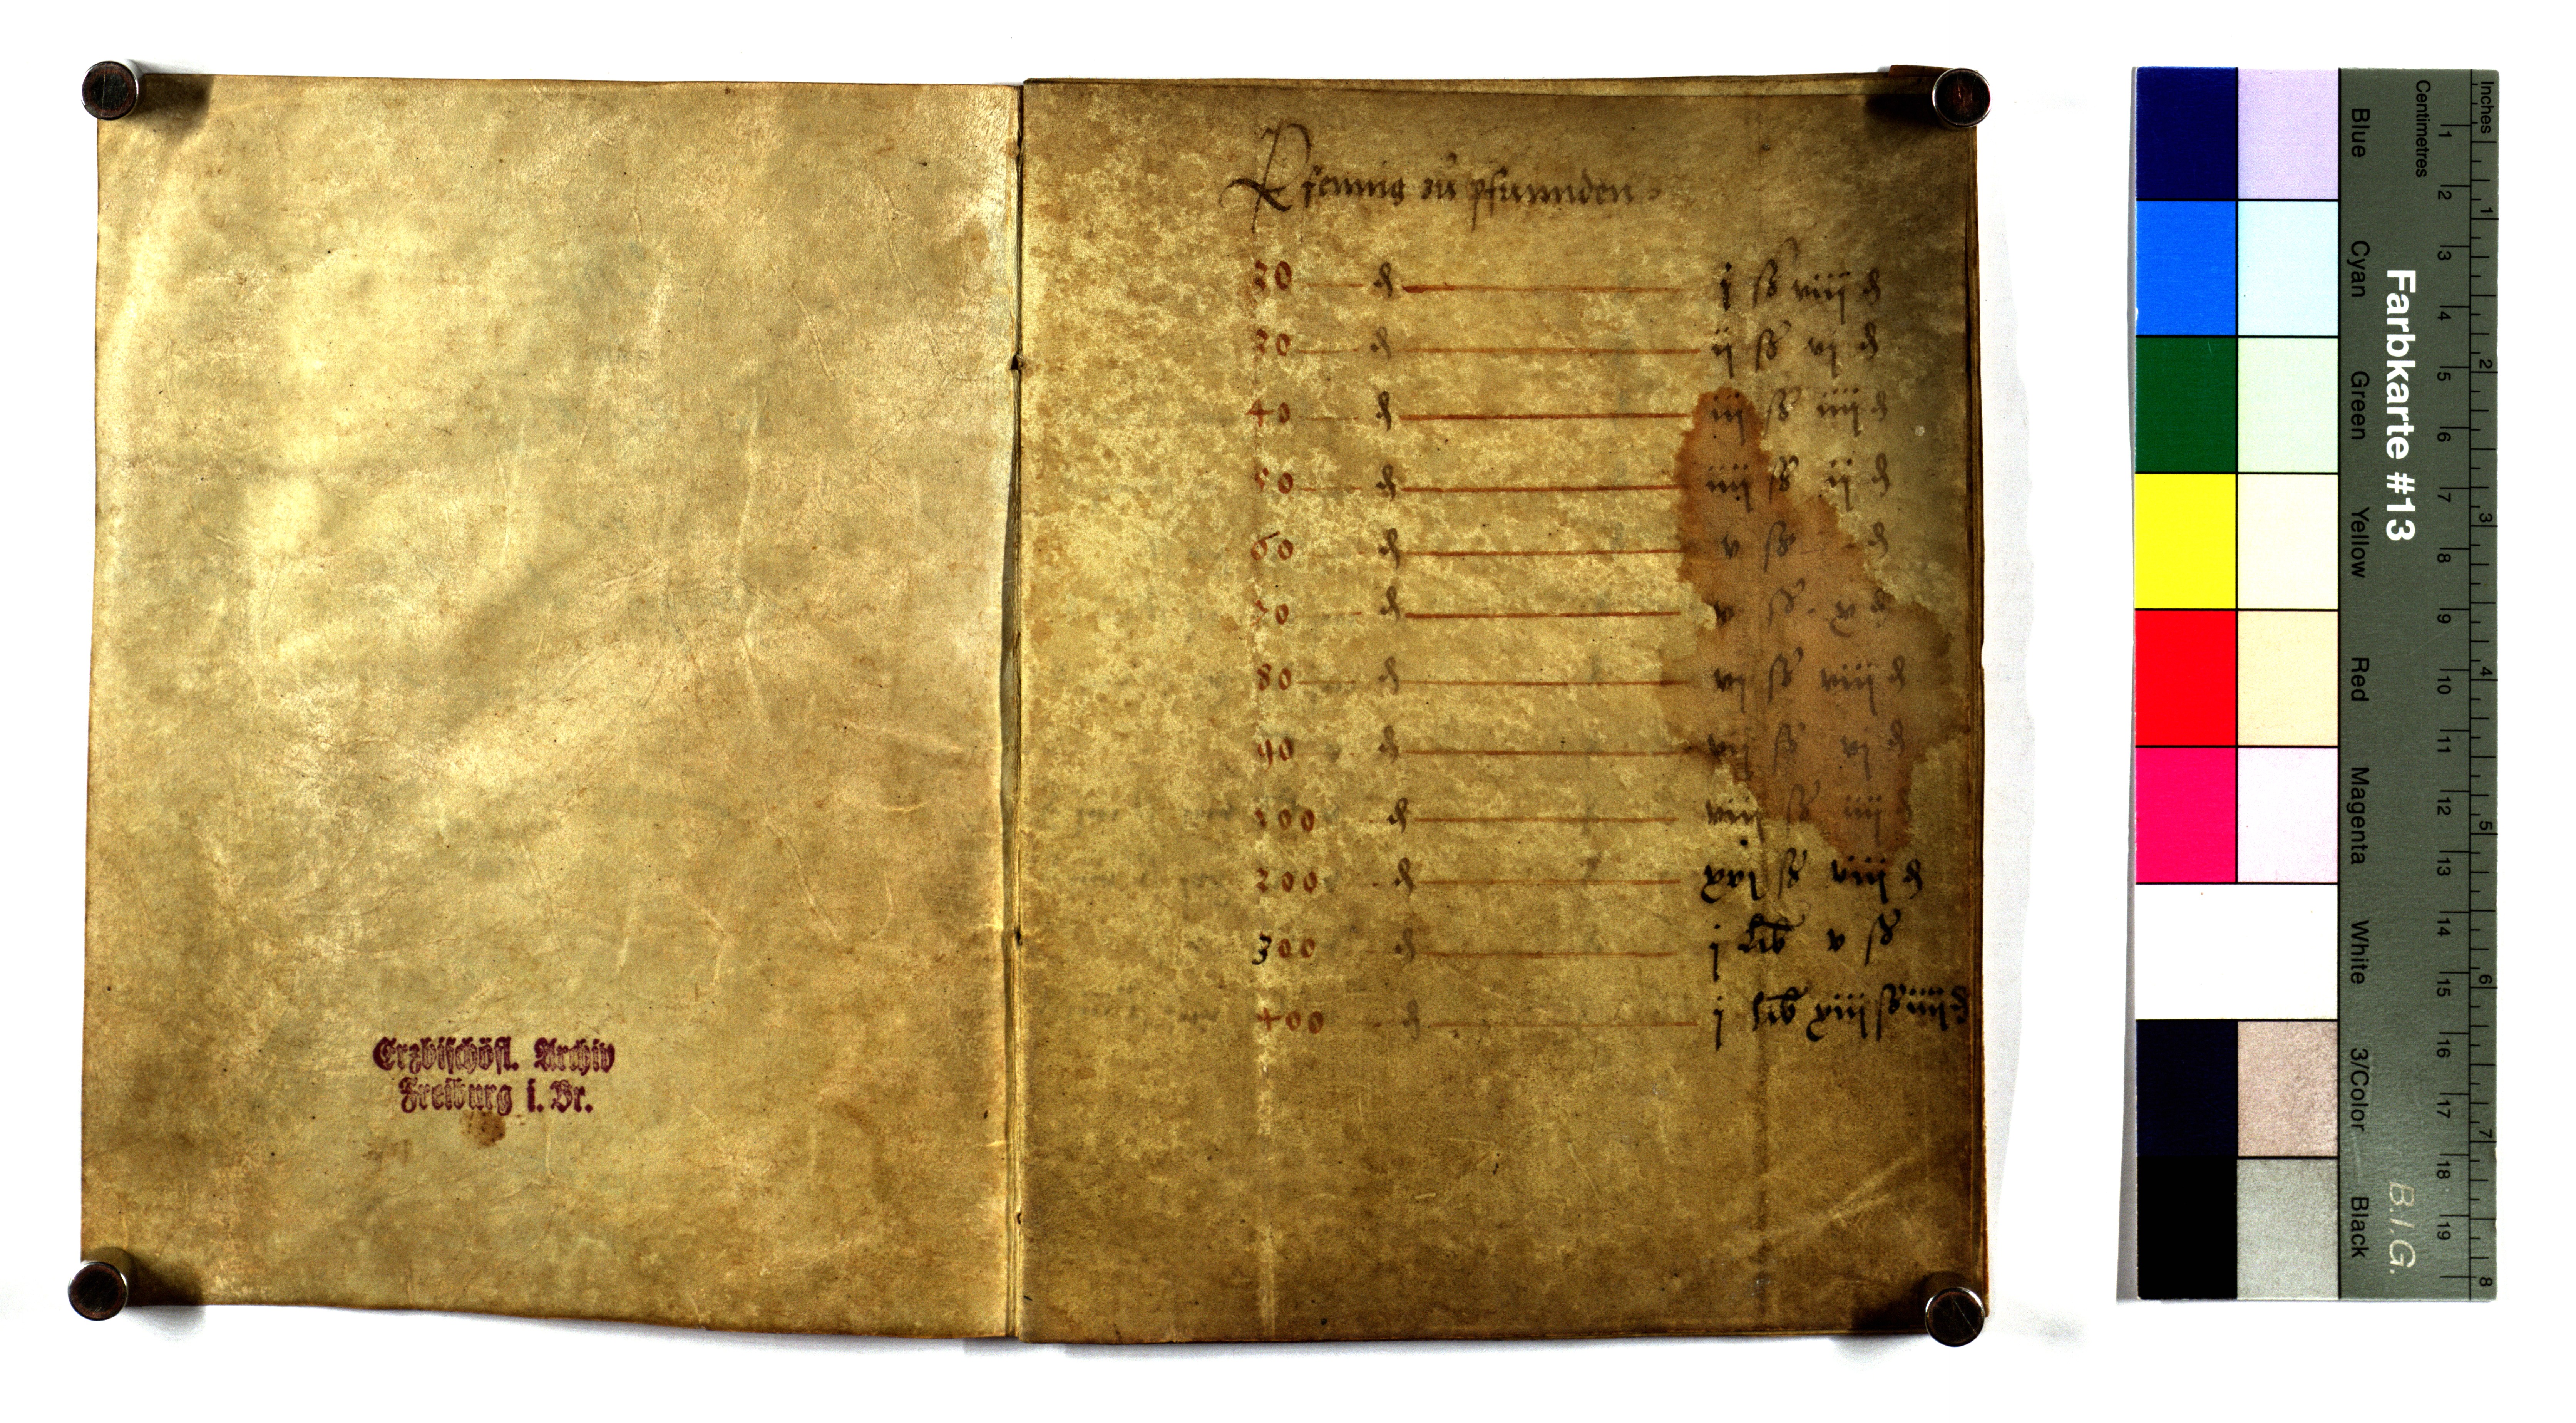 Erzbischöfl. Archiv
Freiburg i. Br.
Pfennig zů pfunnden
20 ₰ j ß viij ₰
30 ₰ ij ß vj ₰
40 ₰ iij ß iiij ₰
50 ₰ iiij ß ij ₰
60 ₰ v ß - ₰
70 ₰ v ß x ₰
80 ₰ vj ß viij ₰
90 ₰ vij ß vj ₰
100 ₰ viij ß iiij ₰
200 ₰ xvj ß viij ₰
300 ₰ j lib v ß
400 ₰ j lib xiij ß iiij ₰
Inches 1 2 3 4 5 6 7 8
Centimetres 1 2 3 4 5 6 7 8 9 10 11 12 13 14 15 16 17 18 19
Farbkarte #13 B.I.G.
Blue Cyan Green Yellow Red Magenta White 3/Color Black